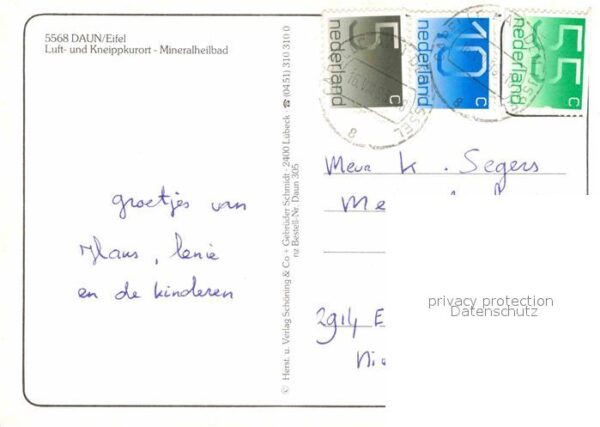 5568 DAUN/Eifel
Luft- und Kneippkurort - Mineralheilbad
5 c nederland
10 c nederland
55 c nederland
Mevr K. Segers
Me
2914 E
Ni
groetjes van
Klaus, Jenie
en de kinderen
© Herst. u. Verlag Schöning & Co + Gebrüder Schmidt · 2400 Lübeck ☎ (0451) 310 310 0
nz Bestell-Nr. Daun 305
privacy protection
Datenschutz